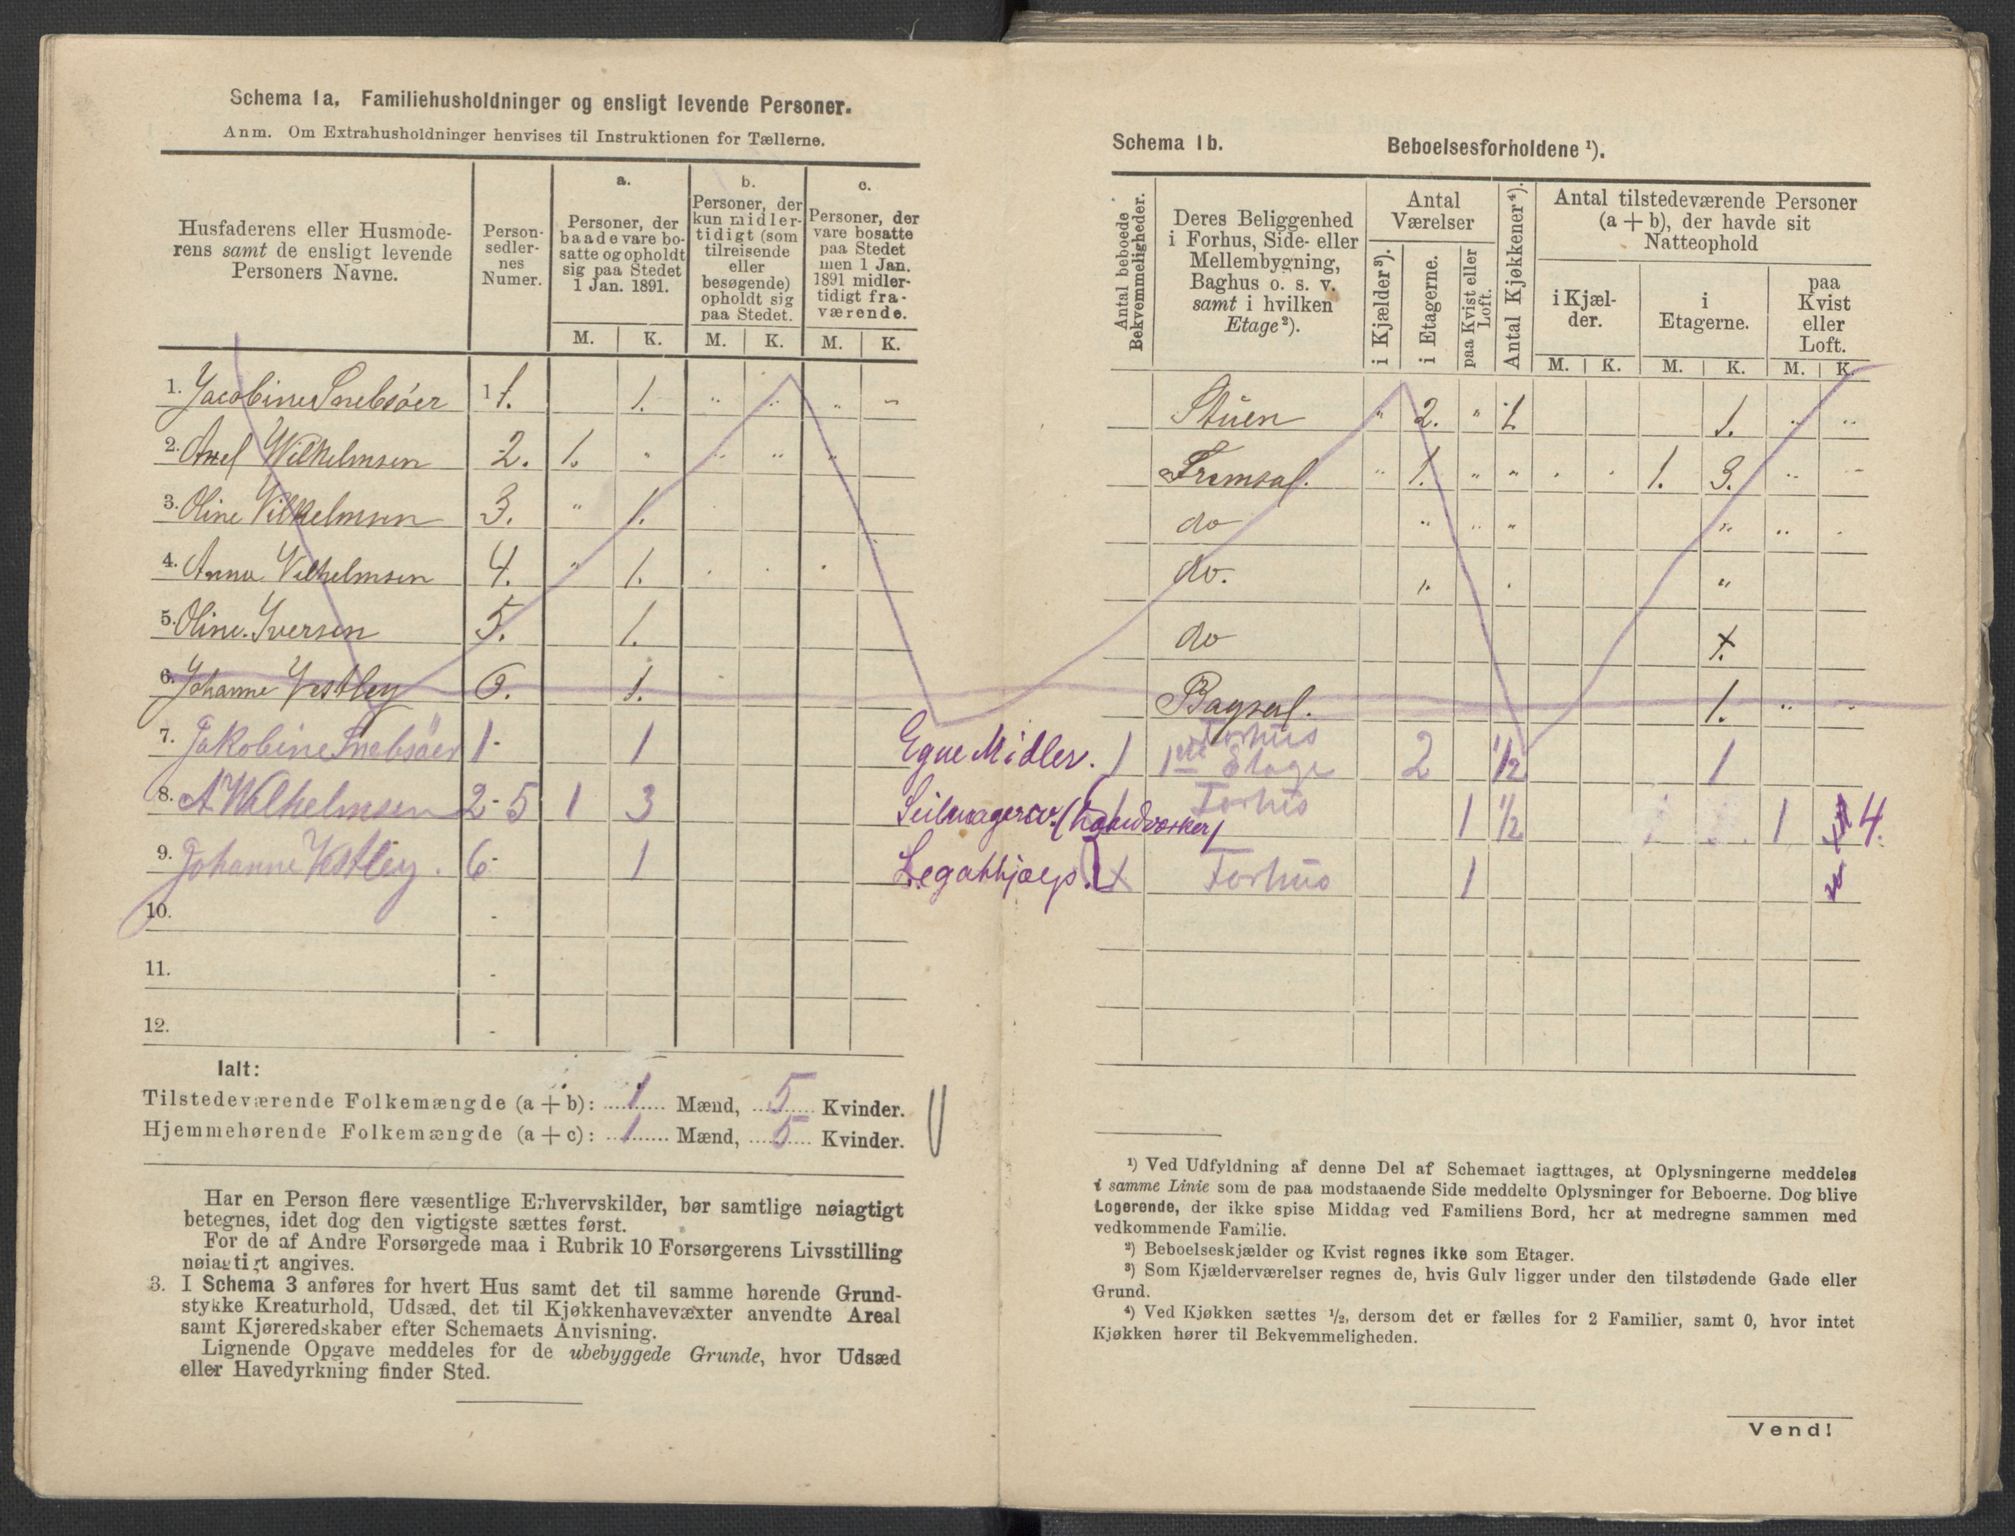 Schema 1a. Familiehusholdninger og ensligt levende Personer.
Anm. Om Extrahusholdninger henvises til Instruktionen for Tællerne.
Husfaderens eller Husmoderens samt de ensligt levende Personers Navne.
Personsedlernes Numer.
a.
Personer, der baade vare bosatte og opholdt sig paa Stedet 1 Jan. 1891.
b.
Personer, der kun midlertidigt (som tilreisende eller besøgende) opholdt sig paa Stedet.
c.
Personer, der vare bosatte paa Stedet men 1 Jan. 1891 midlertidigt fraværende.
M. K. M. K. M. K.
1. Jacobine Snebsöer 1 1. 1. " " " "
2. Axel Wilhelmsen 2. 1. " " " "
3. Oline Vilhelmsen 3. " 1.
4. Anna Vilhelmsen 4. " 1. . . .
5. Oline Iversen 5. 1.
6. Johanne Vestley 6. 1.
7. Jakobine Snebsöer 1- 1
8. A. Wilhelmsen 2-5 1 3
9. Johanne Vestley. 6- 1
10. -
11. -
12. -
Ialt:
Tilstedeværende Folkemængde (a + b): 1 Mænd, 5 Kvinder.
Hjemmehørende Folkemængde (a + c): 1 Mænd, 5 Kvinder.
Har en Person flere væsentlige Erhvervskilder, bør samtlige nøiagtigt
betegnes, idet dog den vigtigste sættes først.
For de af Andre Forsørgede maa i Rubrik 10 Forsørgerens Livsstilling
nøiagtigt angives.
3. I Schema 3 anføres for hvert Hus samt det til samme hørende Grund-
stykke Kreaturhold, Udsæd, det til Kjøkkenhavevæxter anvendte Areal
samt Kjøreredskaber efter Schemaets Anvisning.
Lignende Opgave meddeles for de ubebyggede Grunde, hvor Udsæd
eller Havedyrkning finder Sted.
Schema 1b. Beboelsesforholdene ¹).
Antal beboede Bekvemmeligheder.
Deres Beliggenhed i Forhus, Side- eller Mellembygning, Baghus o. s. v. samt i hvilken Etage²).
Antal Værelser
i Kjælder³).
i Etagerne.
paa Kvist eller Loft.
Antal Kjøkkener⁴).
Antal tilstedeværende Personer (a + b), der havde sit Natteophold
i Kjælder.
i Etagerne.
paa Kvist eller Loft.
M. K. M. K. M. K.
Stuen " 2. " 1. 1. " "
Fremsal. " 1. " " . . 1. 3. " "
do " " " " " .
do. " . "
do 1.
Bagsal. 1. " "
Egne Midler. 1 Forhus 1ste Etage 2 1/2 1
Seilmager (haandværker) 1 Forhus 1 1/2 1 4.
Legathjælp. Forhus 1
¹) Ved Udfyldning af denne Del af Schemaet iagttages, at Oplysningerne meddeles
i samme Linie som de paa modstaaende Side meddelte Oplysninger for Beboerne. Dog blive
Logerende, der ikke spise Middag ved Familiens Bord, her at medregne sammen med
vedkommende Familie.
²) Beboelseskjælder og Kvist regnes ikke som Etager.
³) Som Kjælderværelser regnes de, hvis Gulv ligger under den tilstødende Gade eller
Grund.
⁴) Ved Kjøkken sættes ½, dersom det er fælles for 2 Familier, samt 0, hvor intet
Kjøkken hører til Bekvemmeligheden.
Vend!